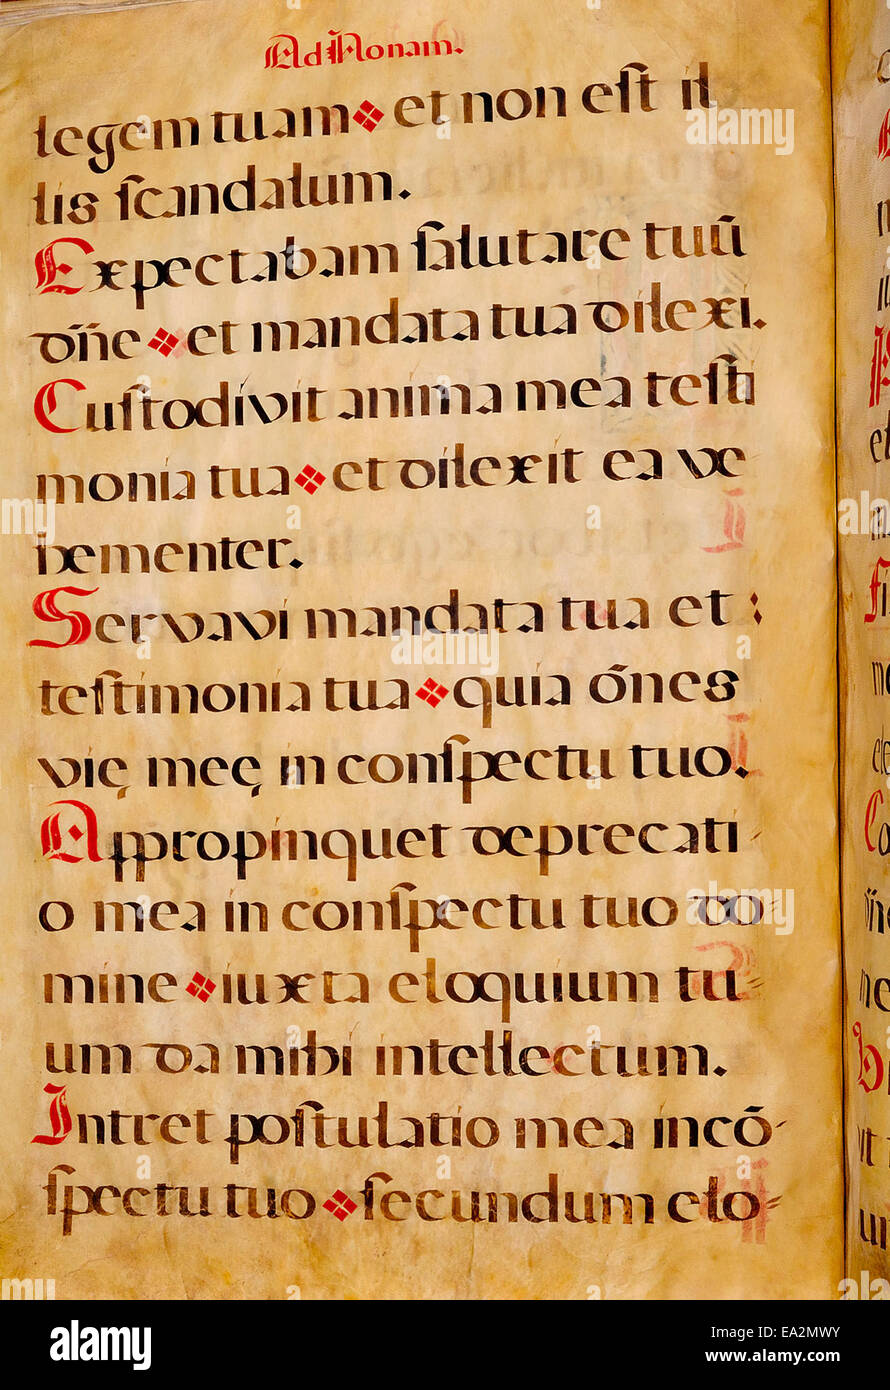 Ad Nonam.
legem tuam et non eſt il
lis ſcandalum.
Expectabam ſalutare tuū
dn̄e et mandata tua dilexi.
Cuſtodivit anima mea teſti
monia tua et dilexit ea ve
hementer.
Servavi mandata tua et :
teſtimonia tua quia ōnes
vię męę in conſpectu tuo.
Appropinquet deprecati-
o mea in conſpectu tuo do-
mine iuxta eloquium tu-
um da mihi intellectum.
Intret poſtulatio mea incō-
ſpectu tuo ſecundum elo-
alamy
Image ID: EA2MWY
www.alamy.com